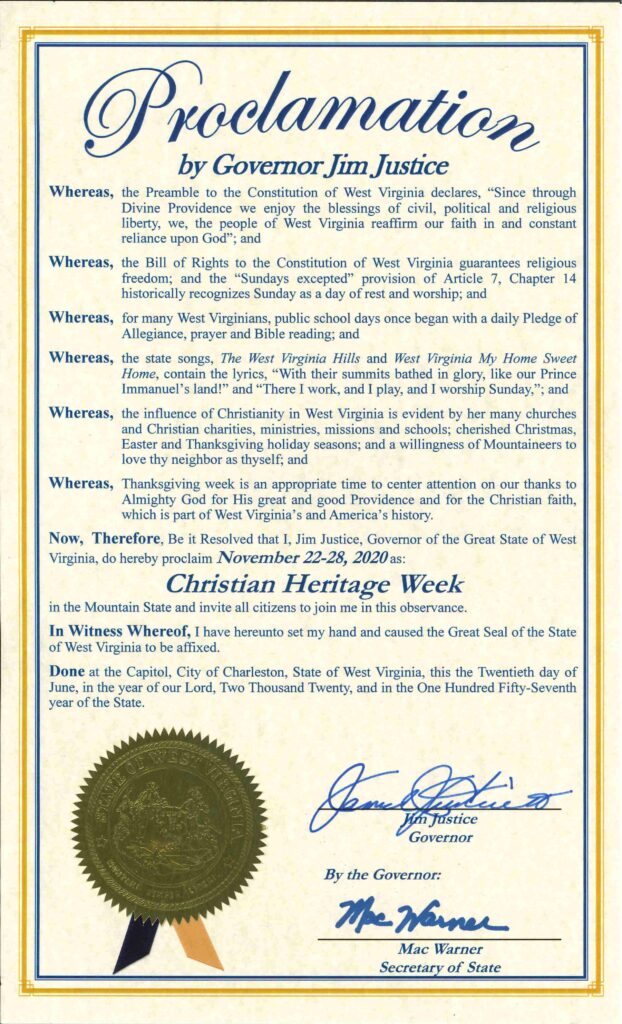 Proclamation
by Governor Jim Justice
Whereas, the Preamble to the Constitution of West Virginia declares, “Since through
Divine Providence we enjoy the blessings of civil, political and religious
liberty, we, the people of West Virginia reaffirm our faith in and constant
reliance upon God”; and
Whereas, the Bill of Rights to the Constitution of West Virginia guarantees religious
freedom; and the “Sundays excepted” provision of Article 7, Chapter 14
historically recognizes Sunday as a day of rest and worship; and
Whereas, for many West Virginians, public school days once began with a daily Pledge of
Allegiance, prayer and Bible reading; and
Whereas, the state songs, The West Virginia Hills and West Virginia My Home Sweet
Home, contain the lyrics, “With their summits bathed in glory, like our Prince
Immanuel’s land!” and “There I work, and I play, and I worship Sunday,”; and
Whereas, the influence of Christianity in West Virginia is evident by her many churches
and Christian charities, ministries, missions and schools; cherished Christmas,
Easter and Thanksgiving holiday seasons; and a willingness of Mountaineers to
love thy neighbor as thyself; and
Whereas, Thanksgiving week is an appropriate time to center attention on our thanks to
Almighty God for His great and good Providence and for the Christian faith,
which is part of West Virginia’s and America’s history.
Now, Therefore, Be it Resolved that I, Jim Justice, Governor of the Great State of West
Virginia, do hereby proclaim November 22-28, 2020 as:
Christian Heritage Week
in the Mountain State and invite all citizens to join me in this observance.
In Witness Whereof, I have hereunto set my hand and caused the Great Seal of the State
of West Virginia to be affixed.
Done at the Capitol, City of Charleston, State of West Virginia, this the Twentieth day of
June, in the year of our Lord, Two Thousand Twenty, and in the One Hundred Fifty-Seventh
year of the State.
STATE OF WEST VIRGINIA
Jim Justice
Governor
By the Governor:
Mac Warner
Mac Warner
Secretary of State